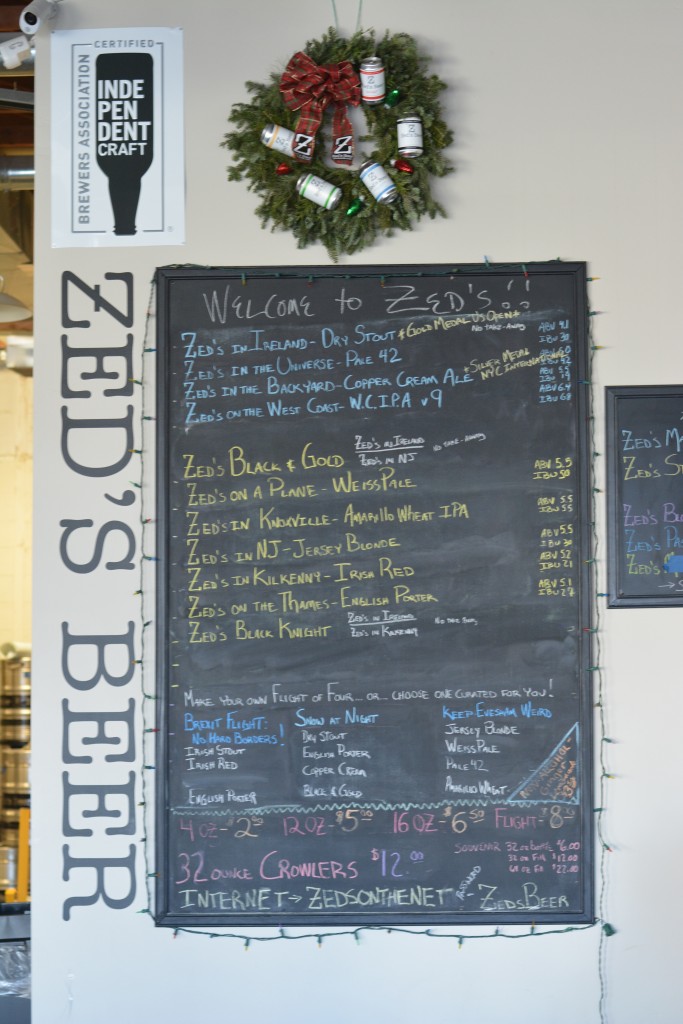 CERTIFIED
BREWERS ASSOCIATION
INDE
PEN
DENT
CRAFT
ZED'S BEER
WELCOME TO ZED'S!!
ZED'S IN IRELAND - DRY STOUT *GOLD MEDAL US OPEN* NO TAKE-AWAY ABV 4.1
ZED'S IN THE UNIVERSE - PALE 42
ZED'S IN THE BACKYARD - COPPER CREAM ALE *SILVER MEDAL
NYC INTERNATIONAL
ZED'S ON THE WEST COAST - W.C.I.P.A V9 ABV 6.4
IBU 68
ZED'S BLACK & GOLD ZED'S IN IRELAND
ZED'S IN NJ NO TAKE-AWAY
ZED'S ON A PLANE - WEISS PALE ABV 5.5
IBU 50
ZED'S IN KNOXVILLE - AMARILLO WHEAT IPA ABV 5.5
IBU 55
ZED'S IN NJ - JERSEY BLONDE ABV 5.5
ZED'S IN KILKENNY - IRISH RED ABV 5.2
IBU 21
ZED'S ON THE THAMES - ENGLISH PORTER ABV 5.1
IBU 27
ZED'S BLACK KNIGHT ZED'S IN IRELAND
ZED'S IN KILKENNY NO TAKE AWAY
MAKE YOUR OWN FLIGHT OF FOUR... OR... CHOOSE ONE CURATED FOR YOU!
BREXIT FLIGHT:
NO HARD BORDERS!
IRISH STOUT
IRISH RED
ENGLISH PORTER
SNOW AT NIGHT
DRY STOUT
ENGLISH PORTER
COPPER CREAM
BLACK & GOLD
KEEP EVESHAM WEIRD
JERSEY BLONDE
WEISS PALE
PALE 42
AMARILLO WHEAT
4 OZ - $2.00 12 OZ - $5.00 16 OZ - $6.50 FLIGHT - $8.00
SOUVENIR 32 oz bottle $6.00
32 oz Fill $12.00
64 oz Fill $22.00
32 OUNCE CROWLERS $12.00
INTERNET → ZEDSONTHENET PASSWORD → ZEDSBEER
ZED'S
ZED'S
ZED'S
ZED'S
ZED'S